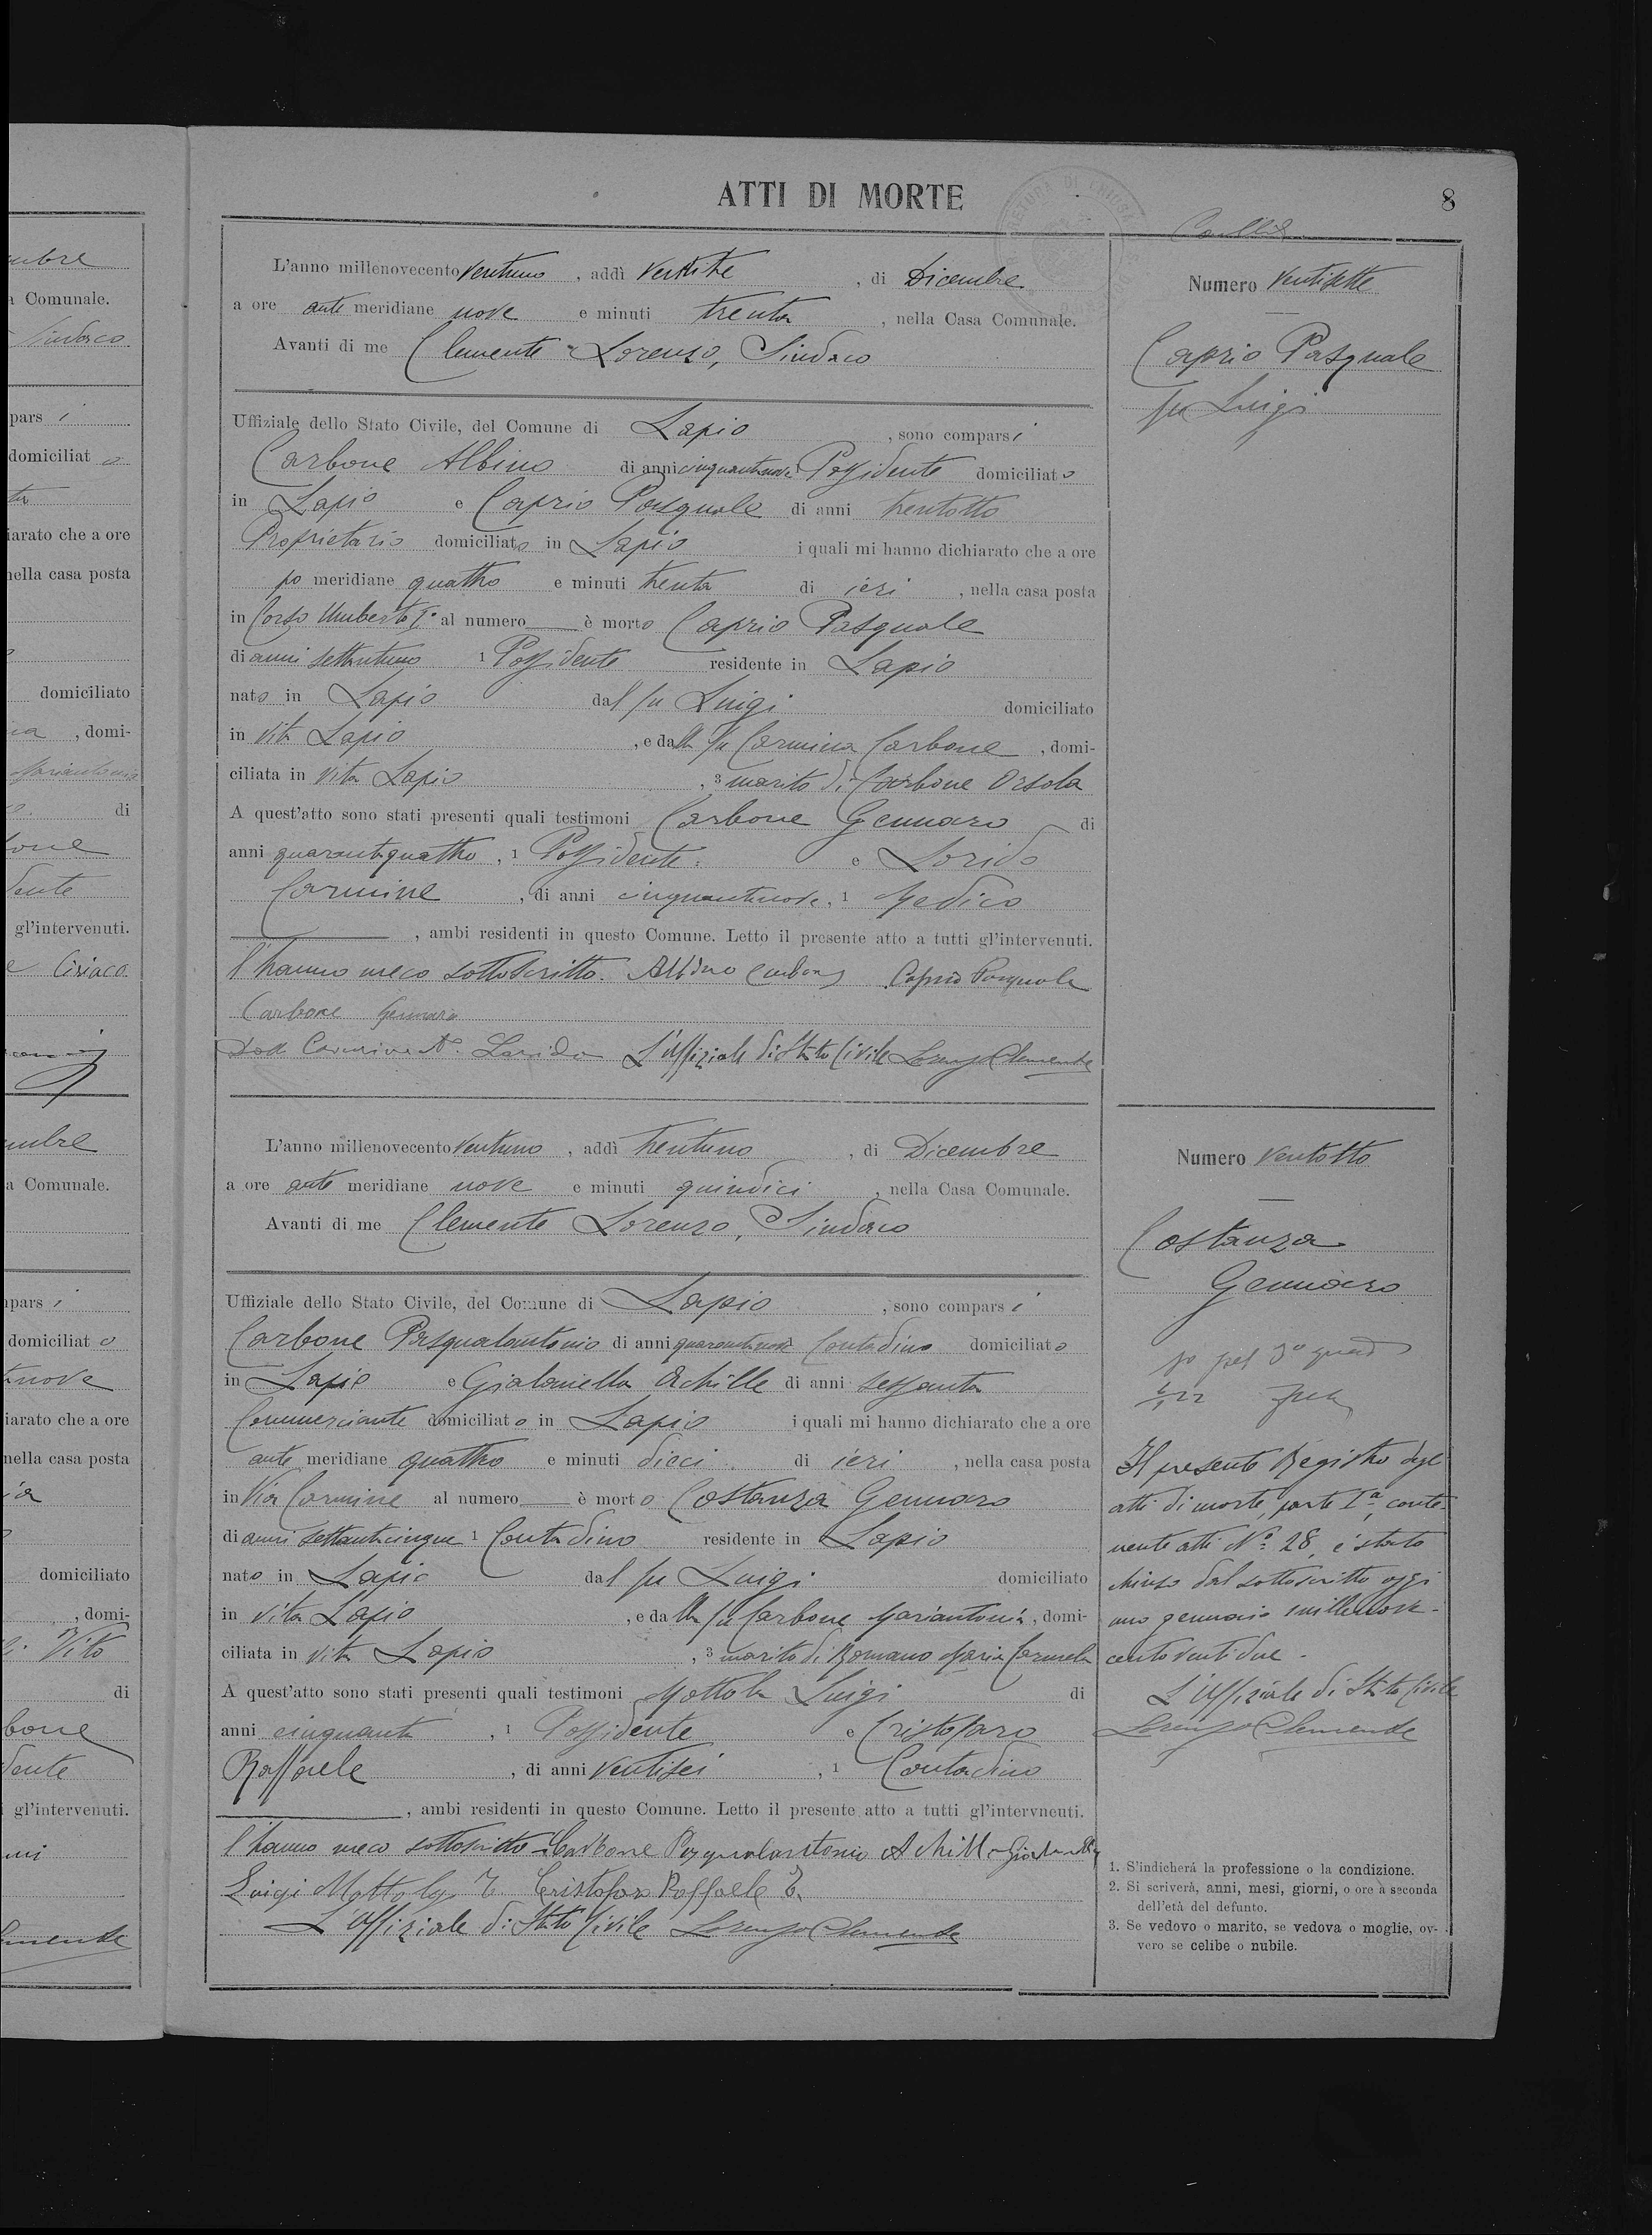 ATTI DI MORTE
8
L'anno millenovecento ventuno, addì ventitre, di Dicembre
a ore ante meridiane nove e minuti trenta, nella Casa Comunale.
Avanti di me Clemente Lorenzo, Sindaco
Uffiziale dello Stato Civile, del Comune di Lapio, sono comparsi
Carbone Albino di anni cinquantanove Possidente domiciliato
in Lapio e Caprio Pasquale di anni trentotto
Proprietario domiciliato in Lapio i quali mi hanno dichiarato che a ore
po meridiane quattro e minuti trenta di ieri, nella casa posta
in Corso Umberto I° al numero è morto Caprio Pasquale
di anni settantuno 1 Possidente residente in Lapio
nato in Lapio dal fu Luigi domiciliato
in vita Lapio, e dalla fu Carmina Carbone, domi-
ciliata in vita Lapio, 3 marito di Carbone Orsola
A quest'atto sono stati presenti quali testimoni Carbone Gennaro di
anni quarantaquattro, 1 Possidente e Lorido
Carmine, di anni cinquantanove, 1 Medico
, ambi residenti in questo Comune. Letto il presente atto a tutti gl'intervenuti.
l'hanno meco sottoscritto. Albino Carbone Caprio Pasquale
Carbone Gennaro
Carmine Lorido L'Uffiziale di Stato Civile Lorenzo Clemente
Numero ventisette
Caprio Pasquale
fu Luigi
L'anno millenovecento ventuno, addì trentuno, di Dicembre
a ore ante meridiane nove e minuti quindici, nella Casa Comunale.
Avanti di me Clemente Lorenzo, Sindaco
Uffiziale dello Stato Civile, del Comune di Lapio, sono comparsi
Carbone Pasqualantonio di anni quarantanove Contadino domiciliato
in Lapio e Gialanella Achille di anni sessanta
Commerciante domiciliato in Lapio i quali mi hanno dichiarato che a ore
ante meridiane quattro e minuti dieci di ieri, nella casa posta
in Via Carmine al numero è morto Costanza Gennaro
di anni settantacinque 1 Contadino residente in Lapio
nato in Lapio dal fu Luigi domiciliato
in vita Lapio, e dalla fu Carbone Mariantonia, domi-
ciliata in vita Lapio, 3 marito di Romano Maria Carmela
A quest'atto sono stati presenti quali testimoni Mottola Luigi di
anni cinquanta, 1 Possidente e Cristofaro
Raffaele, di anni ventisei, 1 Contadino
, ambi residenti in questo Comune. Letto il presente atto a tutti gl'intervneuti.
l'hanno meco sottoscritto Carbone Pasqualantonio Achille Gialanella
Luigi Mottola T. Cristofaro Raffaele T.
L'Uffiziale di Stato Civile Lorenzo Clemente
Numero ventotto
Costanza
Gennaro
Il presente Registro degli
atti di morte, parte Iª, conte-
nente atti N° 28, è stato
chiuso dal sottoscritto oggi
uno gennaio millenove-
centoventidue.
L'Uffiziale di Stato Civile
Lorenzo Clemente
1. S'indicherá la professione o la condizione.
2. Si scriverà, anni, mesi, giorni, o ore a seconda
dell'etá del defunto.
3. Se vedovo o marito, se vedova o moglie, ov-
vero se celibe o nubile.